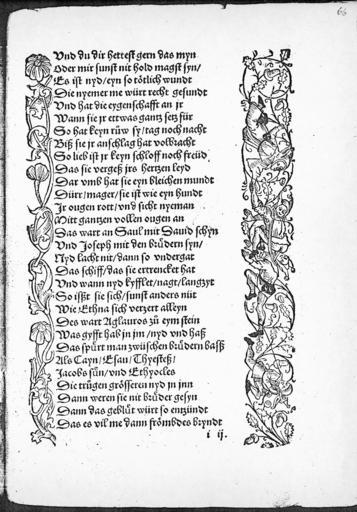 66
Vnd du dir hettest gern das myn
Oder mit sunst nit hold magst syn/
Es ist nyd/eyn so tötlich wundt
Die nyemer me würt recht gesundt
Vnd hat die eygenschafft an jr
Wann sie jr ettwas gantz setz für
So hat keyn rüw sy/tag noch nacht
Biß sie jr anschlag hat volbracht
So lieb ist jr keyn schloff noch freüd
Das sie vergeß jrs hertzen leyd
Dar vmb hat sie eyn bleichen mundt
Dürr/mager/sie ist wie eyn hundt
Jr ougen rott/vnd sicht nyeman
Mitt gantzen vollen ougen an
Das wart an Saul mit Dauid schyn
Vnd Joseph mit den brüdern syn/
Nyd lacht nit/dann so vndergat
Das schiff/das sie ertrencket hat
Vnd wann nyd kyfflet/nagt/langzyt
So isßt sie sich/sunst anders nüt
Wie Ethna sich verzert alleyn
Des wart Aglauros zü eym steyn
Was gyfft hab jn jm/nyd vnd haß
Das spürt man zwüschen brüdern baß
Als Cayn/Esau/Thyestes/
Jacobs sün/vnd Ethyocles
Die trügen grösseren nyd jn jnn
Dann weren sie nit brüder gesyn
Dann das geblüt würt so entzündt
Das es vil me dann frömbdes bryndt
i ij.